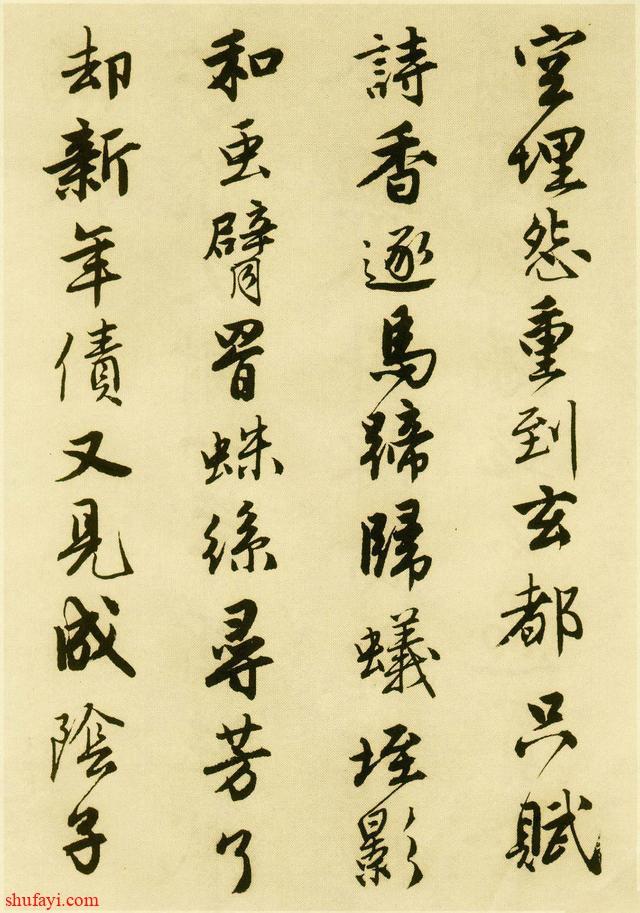 空埋怨重到玄都只賦
詩香逐馬蹄歸蟻垤影
和虫臂罥蛛絲尋芳了
却新年債又見成陰子
shufayi.com